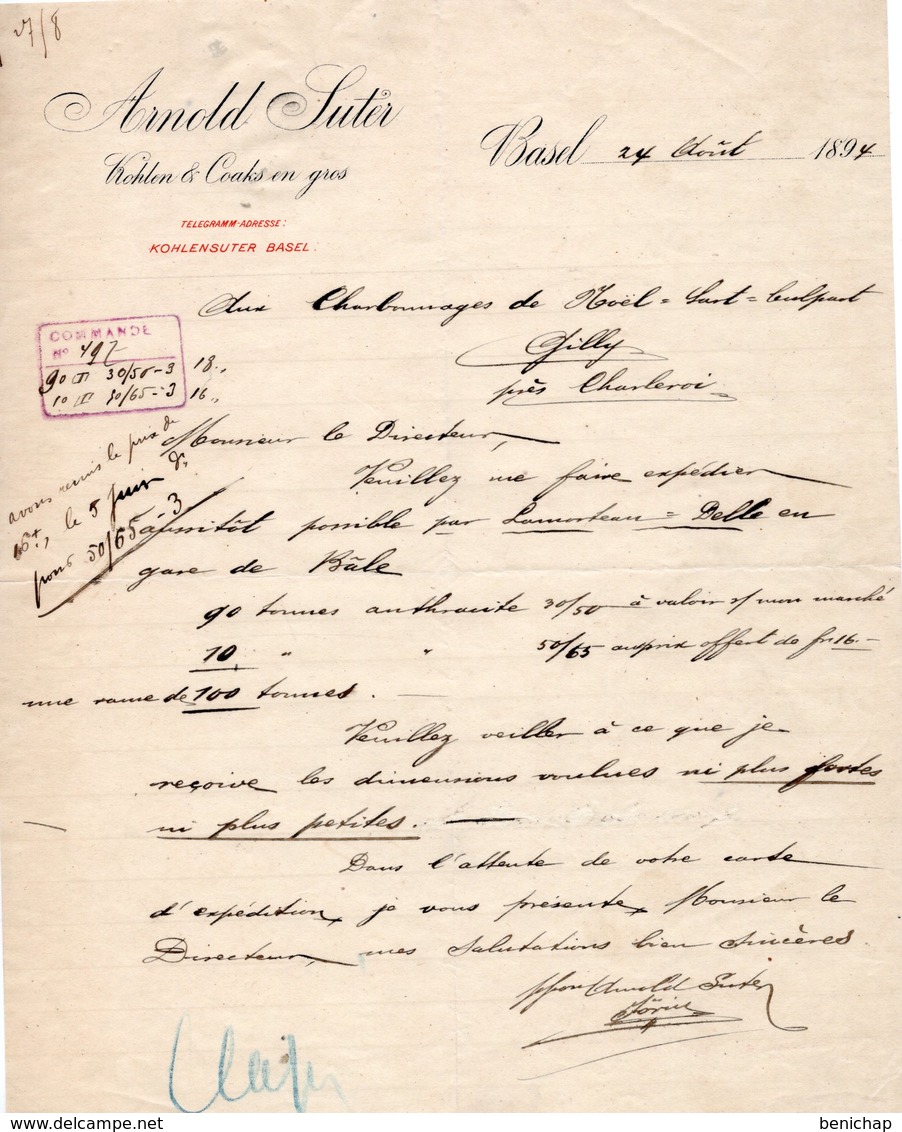 27/8
Arnold Suter
Kohlen & Coaks en gros
TELEGRAMM-ADRESSE:
KOHLENSUTER BASEL.
Basel 24 Août 1894
Aux Charbonnages de Noël=Sart=Culpart
Gilly
près Charleroi
COMMANDE
N° 497
90 T 30/50-3 18.,
10 T 50/65-3 16.,
avons remis le prix de
16 f., le 5 Juin dr
pour 50/65-3
Monsieur le Directeur,
Veuillez me faire expédier
aussitôt possible par Lamorteau=Delle en
gare de Bâle
90 tonnes anthracite 30/50 à valoir s/ mon marché
10 " " 50/65 au prix offert de fr. 16.-
une rame de 100 tonnes.
Veuillez veiller à ce que je
reçoive les dimensions voulues ni plus fortes
ni plus petites.
Dans l'attente de votre carte
d'expédition, je vous présente, Monsieur le
Directeur, mes salutations bien sincères.
ppon Arnold Suter
delcampe.net
benichap